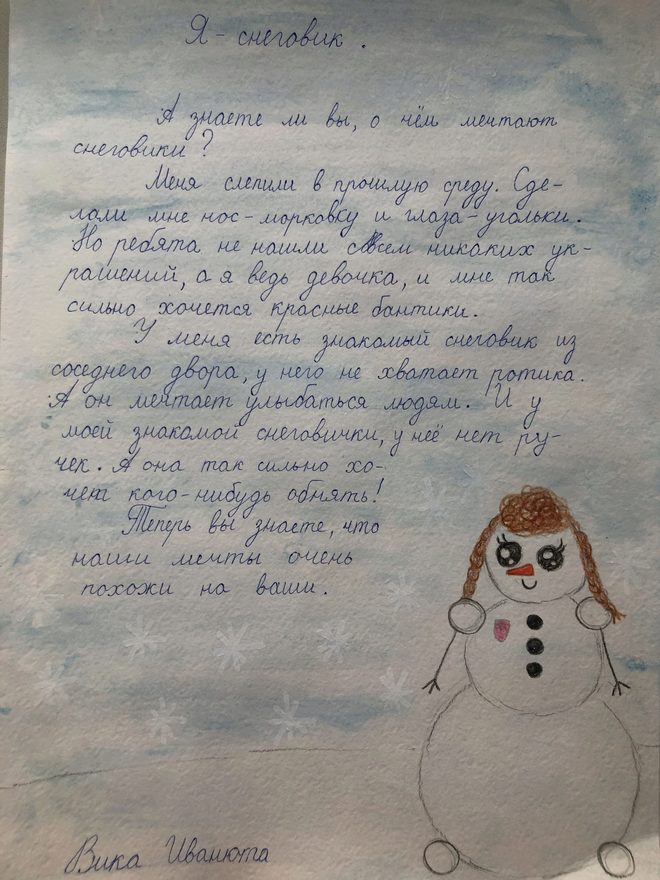 Я - снеговик.
А знаете ли вы, о чём мечтают
снеговики?
Меня слепили в прошлую среду. Сде-
лали мне нос - морковку и глаза - угольки.
Но ребята не нашли совсем никаких ук-
рашений, а я ведь девочка, и мне так
сильно хочется красные бантики.
У меня есть знакомый снеговик из
соседнего двора, у него не хватает ротика.
А он мечтает улыбаться людям. И у
моей знакомой снеговички, у неё нет ру-
чек. А она так сильно хо-
чет кого-нибудь обнять!
Теперь вы знаете, что
наши мечты очень
похожи на ваши.
Вика Иванюта